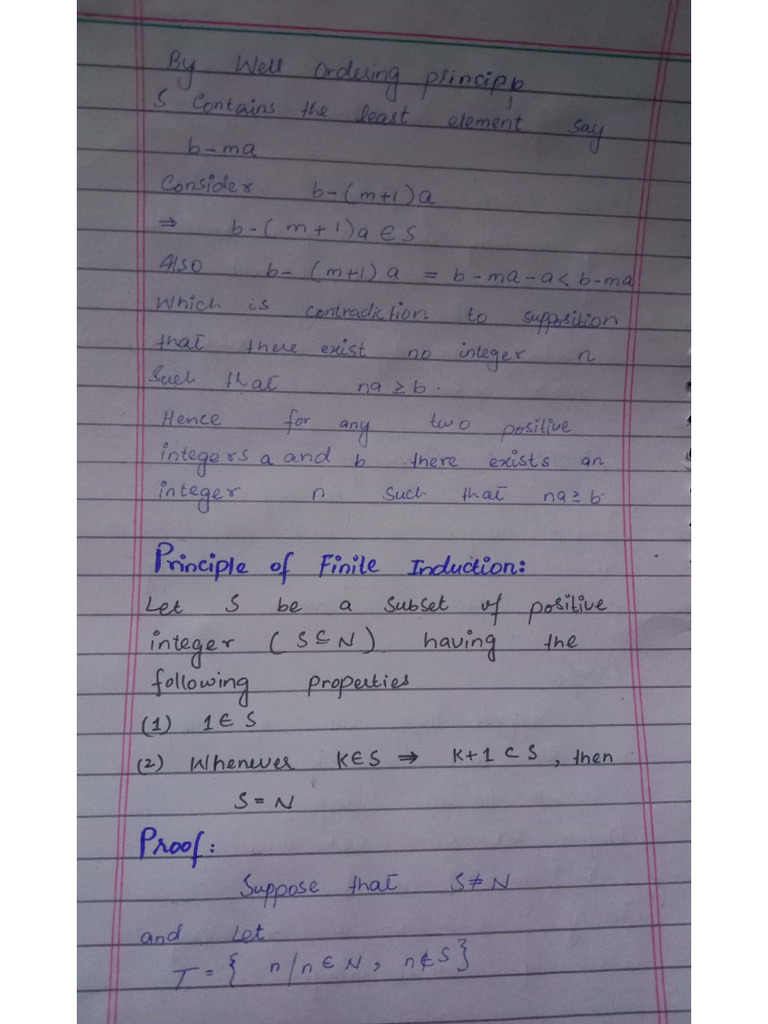 By Well ordering principle
S Contains the least element say
b-ma
Consider b-(m+1)a
⇒ b-(m+1)a ∈ S
Also b-(m+1)a = b-ma-a< b-ma
Which is contradiction to supposition
that there exist no integer n
Such that na ≥ b.
Hence for any two positive
integers a and b there exists an
integer n such that na ≥ b.
Principle of Finite Induction:
Let S be a subset of positive
integer ( S ⊆ N ) having the
following properties
(1) 1 ∈ S
(2) Whenever K∈S ⇒ K+1 ⊂ S, then
S = N
Proof:
Suppose that S ≠ N
and Let
T = { n/n ∈ N, n∉S}